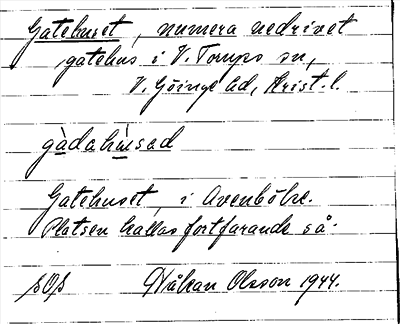 Gatehuset, numera nedrivet
gatehus i V. Torups sn,
V. Göinge hd, Krist. l.
gàdahúsad
Gatehuset, i Avenböke.
Platsen kallas fortfarande så.
Håkan Olsson 1944.